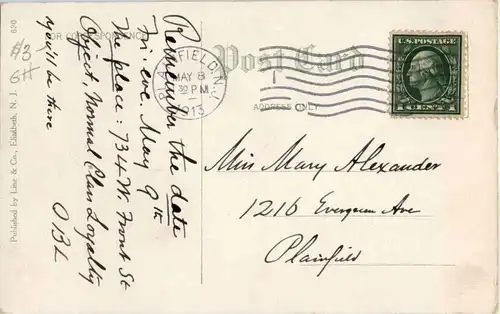 690
FOR CORRESPONDENCE
Published by Line & Co., Elizabeth, N. J.
#3
Remember the date
Fri. eve. May 9th
The place: 734 W. Front St
Object, Normal Class Loyalty
you'll be there
Post Card
PLAINFIELD, N.J.
MAY 8
30 PM
1913
ADDRESS ONLY
U.S. POSTAGE
1 CENT 1
Miss Mary Alexander
1216 Evergreen Ave
Plainfield